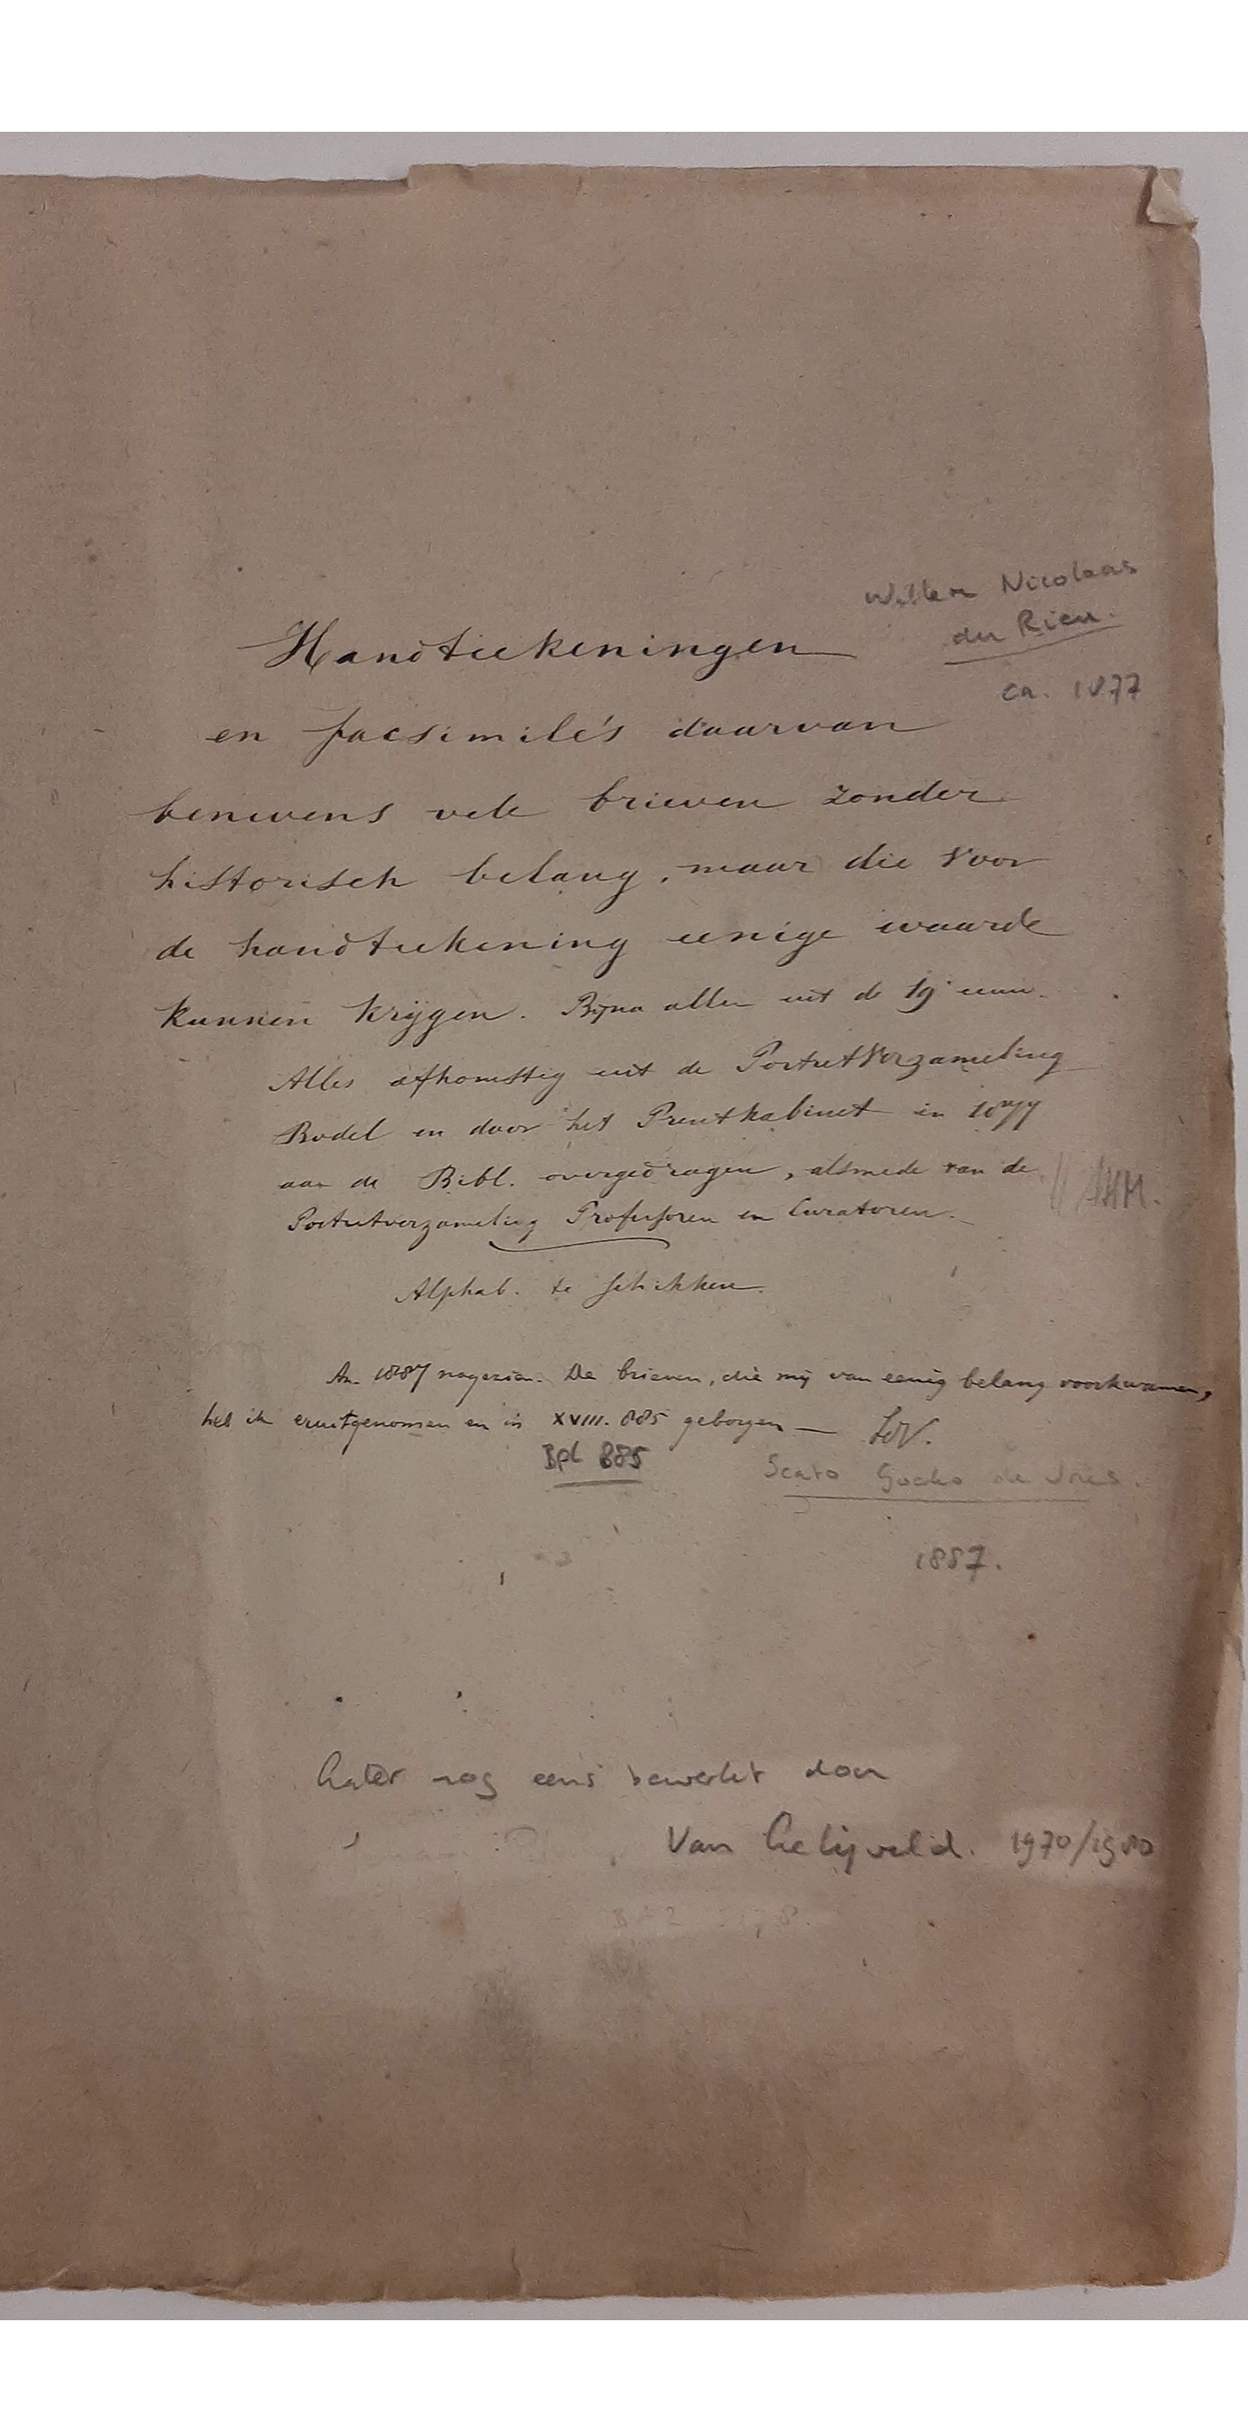 Willem Nicolaas
du Rieu.
ca. 1877
Handteekeningen
en facsimile's daarvan
benevens vele brieven zonder
historisch belang, maar die voor
de handteekening eenige waarde
kunnen krijgen. Bijna allen uit de 19e eeuw.
Alles afkomstig uit de Portretverzameling
Bodel en door het Prentkabinet in 1877
aan de Bibl. overgedragen, alsmede van de
Portretverzameling Professoren en Curatoren.
Alphab. te schikken.
An. 1887 nagezien. De brieven, die mij van eenig belang voorkwamen,
heb ik eruitgenomen en in XVIII. 885 geborgen — SdV.
BPL 885
Scato Gocko de Vries.
1887.
Later nog eens bewerkt door
Van Gelijveld. 1970/1980